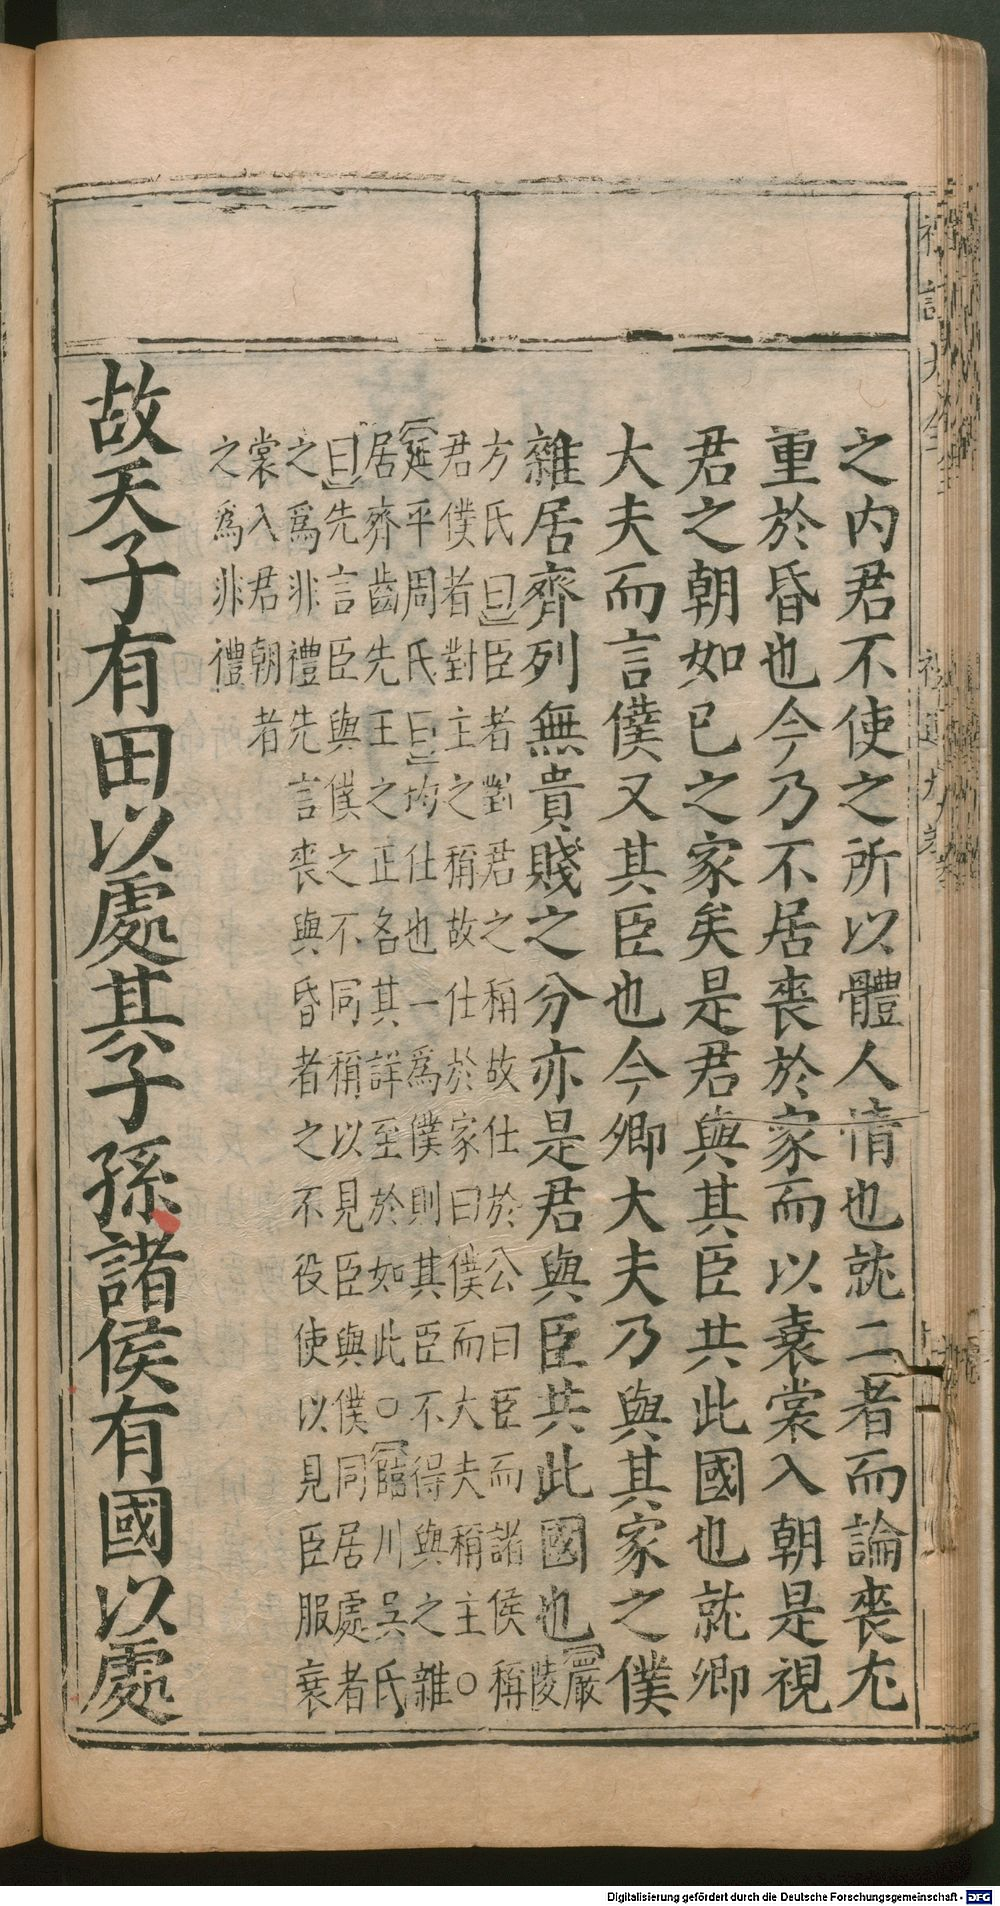 之内君不使之所以體人情也就二者而論喪尤
重於昏也今乃不居喪於家而以衰裳入朝是視
君之朝如已之家矣是君與其臣共此國也就卿
大夫而言僕又其臣也今卿大夫乃與其家之僕
雜居齊列無貴賤之分亦是君與臣共此國也嚴陵
方氏曰臣者對君之稱故仕於公曰臣而諸侯稱
君僕者對主之稱故仕於家曰僕而大夫稱主○
延平周氏曰均仕也一爲僕則其臣不得與之雜
居齊齒先王之正名其詳至於如此○臨川吳氏
曰先言臣與僕之不同稱以見臣與僕同居處者
之爲非禮先言喪與昏者之不役使以見臣服衰
裳入君朝者
之爲非禮
故天子有田以處其子孫諸侯有國以處
Digitalisierung gefördert durch die Deutsche Forschungsgemeinschaft - DFG